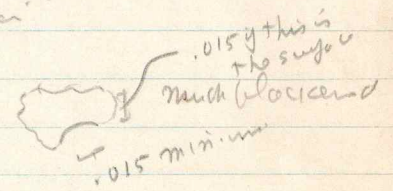 .015 if this is
the surface
much blackened
.015 minimum